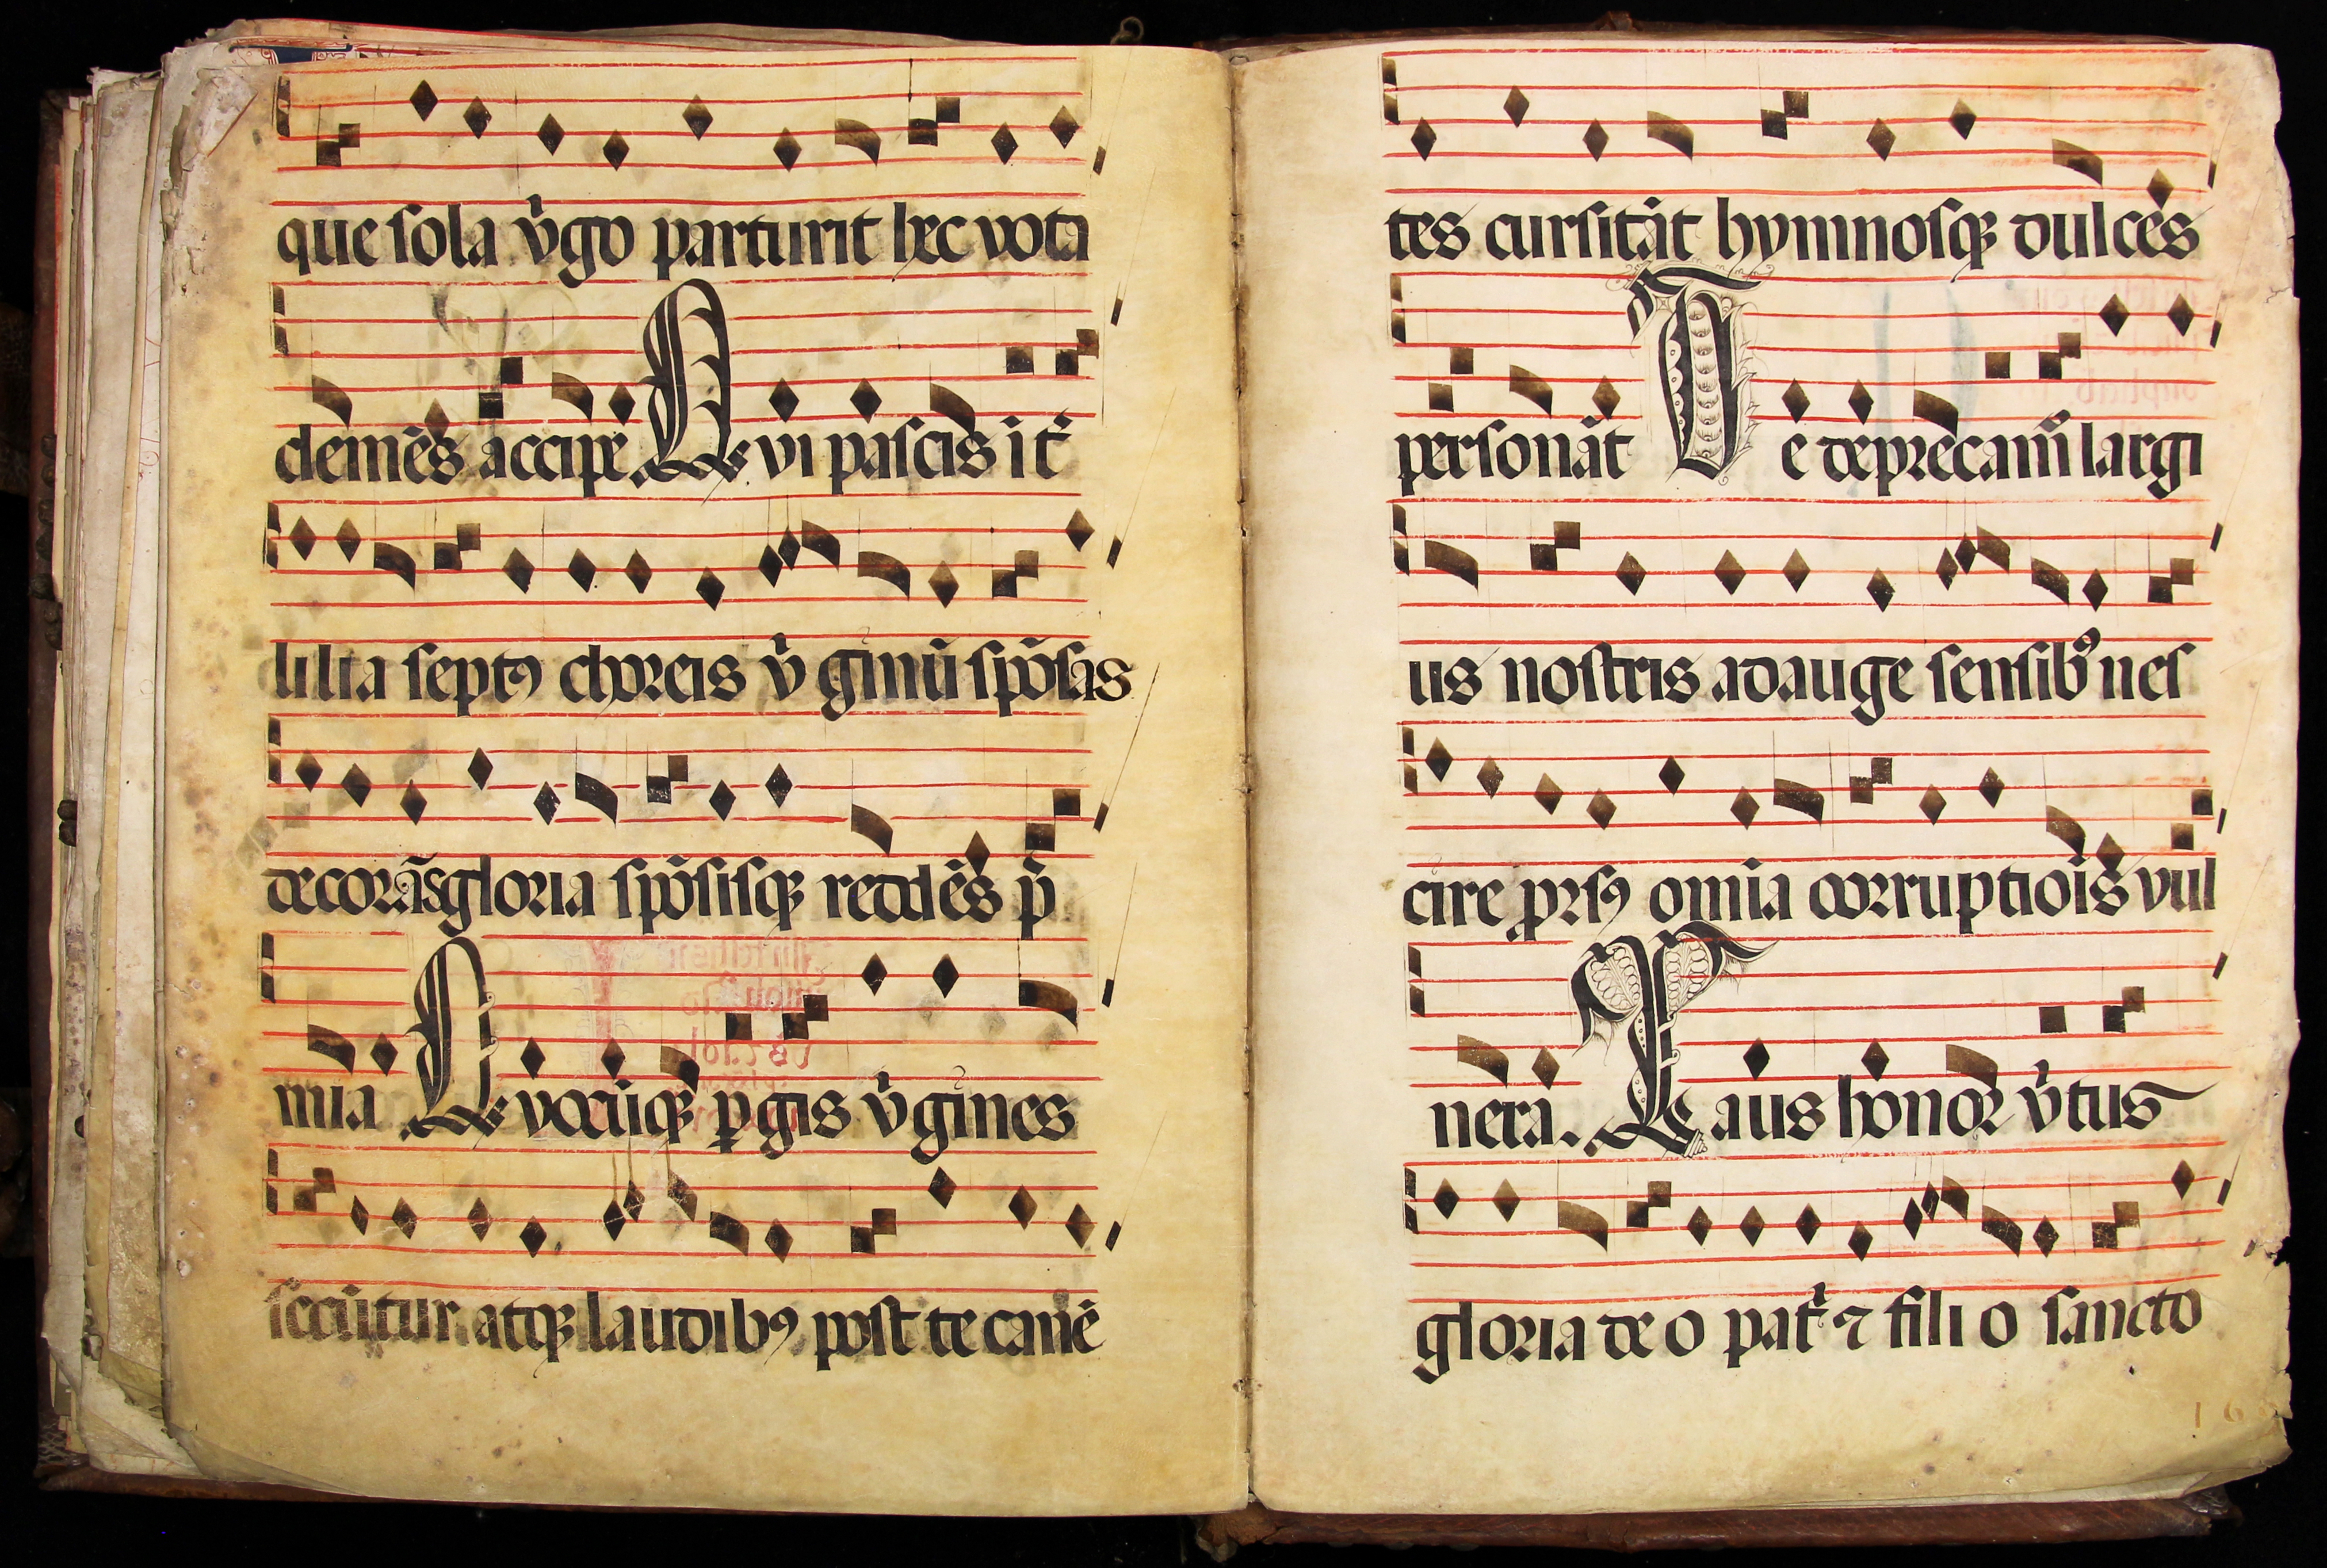 que sola v̉go parturit hec vota
clemēs accipe. Qui pascis it̉
lilia septꝰ choreis v̉ginū spōsas
decorās gloria spōsisqꝫ reddēs p̄
mia Quocūqꝫ ꝑgis v̉gines
secūtur atqꝫ laudibꝰ post te canē
tes cursitāt hymnosqꝫ dulces
personāt Te deprecam̄ largi
us nostris adauge sensibꝰ nes
cire prorsꝰ omīa corruptiōis vul
nera. Laus honor v̉tus
gloria deo pat̉ ⁊ filio sancto
16